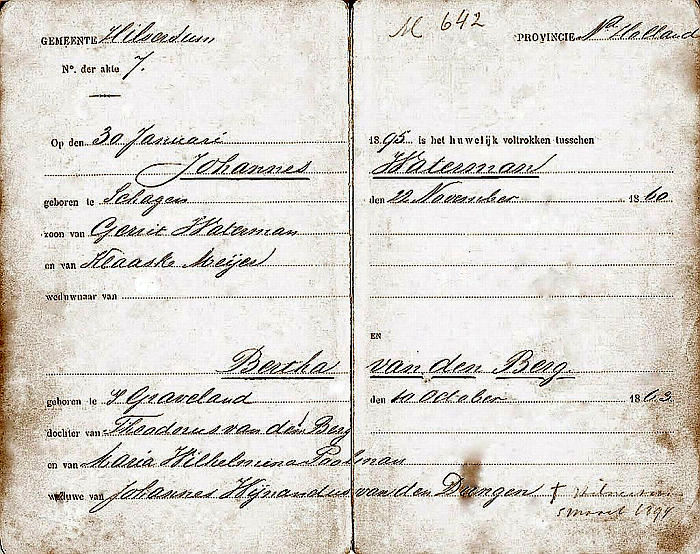 M 642
GEMEENTE Hilversum PROVINCIE Nd Holland
No. der akte 7.
Op den 30 Januari 1895 is het huwelijk voltrokken tusschen
Johannes Waterman
geboren te Schagen den 22 November 1860
zoon van Gerrit Waterman
en van Klaaske Meijer
weduwnaar van
EN
Bertha van den Berg
geboren te 's Graveland den 10 October 1863
dochter van Theodorus van den Berg
en van Maria Wilhelmina Poolman
weduwe van Johannes Wijnandus van den Dungen †
5 maart 1894